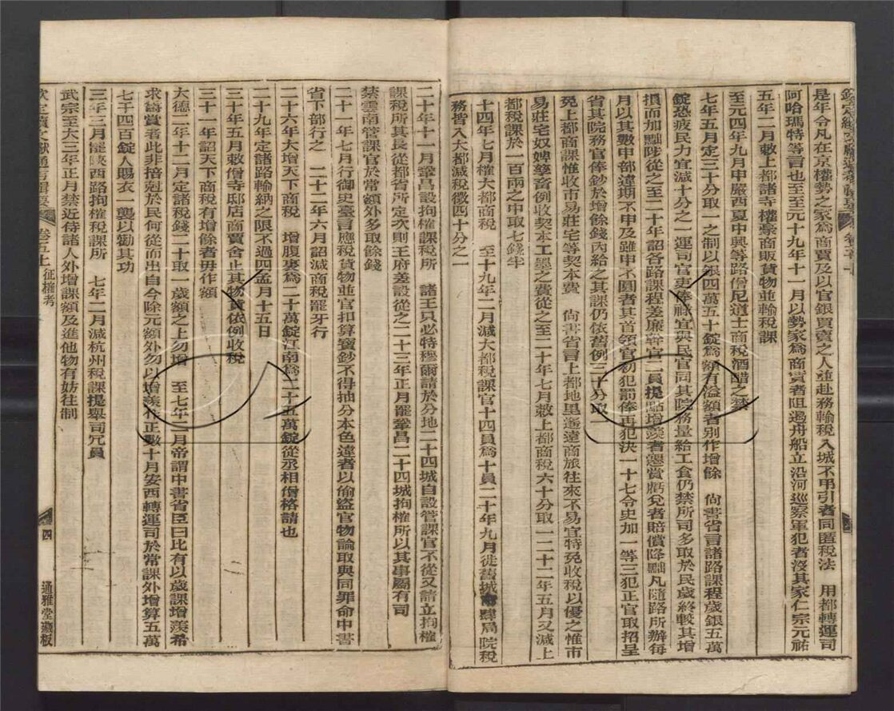 是年令凡在京權勢之家爲商賈及以官銀買賣之人並赴務輸稅入城不弔引者同匿稅法　用都轉運司
阿哈瑪特等言也至至元十九年十一月以勢家爲商賈者阻遏舟船立沿河巡察軍犯者沒其家仁宗元祐
五年二月敕上都諸寺權豪商販貨物並輸稅課
至元四年九月申嚴西夏中興等路僧尼道士商稅酒醋之禁
七年五月定三十分取一之制以銀四萬五千錠爲額有溢額者別作增餘　尚書省言諸路課程歲銀五萬
錠恐疲民力宜減十分之一運司官吏俸祿宜與民官同其院務量給工食仍禁所司多取於民歲終較其增
損而加黜陟從之至二十年詔各路課程差廉幹官二員提點增羨者遷賞虧兌者賠償降黜凡隨路所辦每
月以其數申部違期不申及雖申不圓者其首領官初犯罰俸再犯決一十七令史加一等三犯正官取招呈
省其院務官俸鈔於增餘錢內給之其課仍依舊例三十分取一
免上都商課惟收市易莊宅等契本費　尚書省言上都地里遙遠商旅往來不易宜特免收稅以優之惟市
易莊宅奴婢孳畜例收契本工墨之費從之至二十年七月敕上都商稅六十分取一二十二年五月又減上
都稅課於一百兩之中取七錢半
十四年七月榷大都商稅　至十九年二月減大都稅課官十四員爲十員二十年九月徙舊城肆局院稅
務皆入大都減稅徵四十分之一
二十年十一月鞏昌設拘榷課稅所　諸王只必特穆爾請於分地二十四城自設管課官不從又請立拘榷
課稅所其長從都省所定次則王府差設從之二十三年正月罷鞏昌二十四城拘榷所以其事屬有司
禁雲南管課官於常額外多取餘錢
二十一年七月行御史臺言應稅貨物並官扣算寶鈔不得抽分本色違者以偷盜官物論取與同罪命中書
省下部行之　二十二年六月詔減商稅罷牙行
二十六年大增天下商稅　增腹裏爲二十萬錠江南爲二十五萬錠從丞相僧格請也
二十九年定諸路輸納之限不過四孟月十五日
三十年五月敕僧寺邸店商賈舍止其物貨依例收稅
三十一年詔天下商稅有增餘者毋作額
大德二年十二月定諸稅錢二十取一歲額之上勿增　至七年二月帝謂中書省臣曰比有以歲課增羨希
求論賞者此非掊剋於民何從而出自今除元額外勿以增羨作正數十月安西轉運司於常課外增算五萬
七千四百錠人賜衣一襲以勸其功
三年三月罷陝西路拘榷稅課所　七年二月減杭州稅課提舉司冗員
武宗至大三年正月禁近侍諸人外增課額及進他物有妨往制
欽定續文獻通考輯要
卷五上
征榷考
四
通雅堂藏板